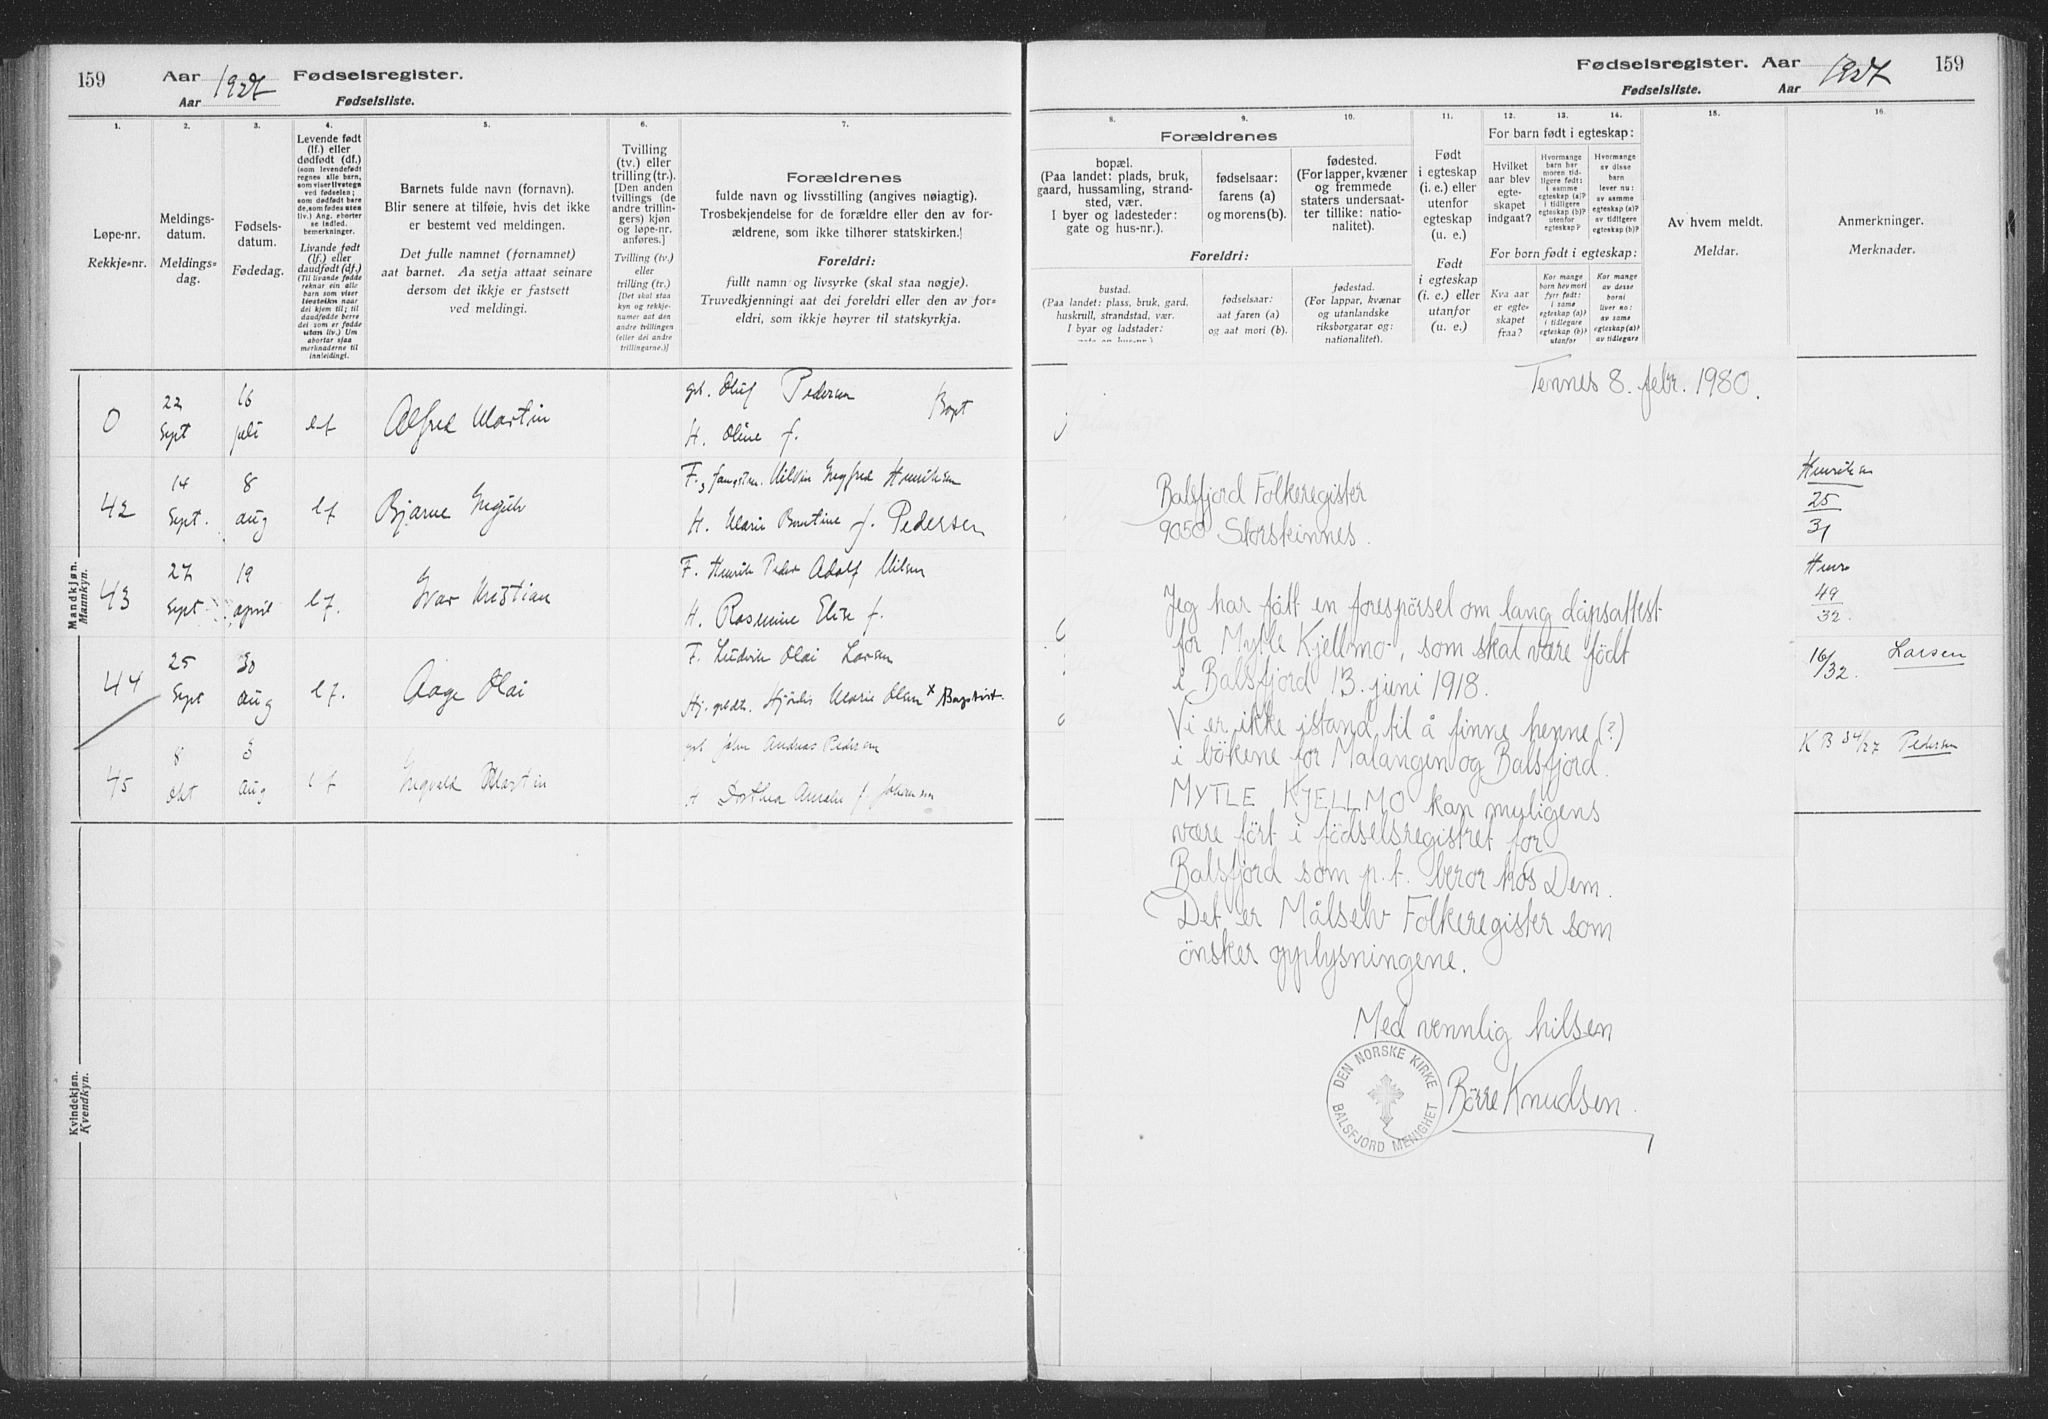 159
Aar 1927 Fødselsregister.
Aar Fødselsliste.
1.
2.
3.
4.
5.
6.
7.
Løpe-nr.
Rekkje-nr.
Meldings-
datum.
Meldings-
dag.
Fødsels-
datum.
Fødedag.
Levende født
(lf.) eller
dødfødt (df.)
(som levendefødt
regnes alle barn,
som viser livstegn
ved fødselen;
som dødfødt bare
de, som fødes uten
liv.) Ang. aborter
se indled.
bemerkninger.
Livande født
(lf.) eller
daudfødt (df.)
(Til livande fødde
reknar ein alle
barn som viser
livsteikn naar
dei kjem til; til
daudfødde berre
dei som er fødde
utan liv.) Um
abortar sjaa
merknaderne til
innleidingi.
Barnets fulde navn (fornavn).
Blir senere at tilføie, hvis det ikke
er bestemt ved meldingen.
Det fulle namnet (fornamnet)
aat barnet. Aa setja attaat seinare
dersom det ikkje er fastsett
ved meldingi.
Tvilling
(tv.) eller
trilling (tr.).
[Den anden
tvillings (de
andre trillin-
gers) kjøn
og løpe-nr.
anføres.]
Tvilling (tv.)
eller
trilling (tr.)
[Det skal staa
kyn og rekkje-
numer aat den
andre tvillingen
(eller dei andre
trillingarne.)]
Forældrenes
fulde navn og livsstilling (angives nøiagtig).
Trosbekjendelse for de forældre eller den av for-
ældrene, som ikke tilhører statskirken.
Foreldri:
fullt namn og livsyrke (skal staa nøgje).
Truvedkjenningi aat dei foreldri eller den av for-
eldri, som ikkje høyrer til statskyrkja.
Mandkjøn.
Mannkyn.
0
22 Sept
16 juli
lf
Alfred Martin
gbr. Oluf Pedersen Bapt
H. Oline f.
42
14 Sept.
8 aug
lf
Bjarne
F. Henriksen
H. Marie f. Pedersen
43
27 Sept
19 april
lf.
Ivar Kristian
F. Henrik Peder Adolf Nilsen
H. Rasmine Elise f.
44
25 Sept
30 aug
lf.
Aage Olai
F. Ludvik Olai Larsen
Hj. Hjørdis Marie Olsen x Baptist.
45
8 Okt
3 aug
lf
Ingvald Martin
gbr John Andreas Pedersen
H Dorthea Amalie f. Johansen
Kvindekjøn.
Kvendkyn.
Fødselsregister. Aar 1927 159
Fødselsliste. Aar
8.
9.
10.
11.
12.
13.
14.
15.
16.
Forældrenes
bopæl.
(Paa landet: plads, bruk,
gaard, hussamling, strand-
sted, vær.
I byer og ladesteder:
gate og hus-nr.).
fødselsaar:
farens (a)
og morens (b).
fødested.
(For lapper, kvæner
og fremmede
staters undersaat-
ter tillike: natio-
nalitet).
Foreldri:
bustad.
(Paa landet: plass, bruk, gard,
huskrull, strandstad, vær.
I byar og ladstader:
fødselsaar:
aat faren (a)
og aat mori (b).
fødestad.
(For lappar, kvænar
og utanlandske
riksborgarar og:
nationalitet).
Født
i egteskap
(i. e.) eller
utenfor
egteskap
(u. e.)
Født
i egteskap
(i. e.) eller
utanfor
(u. e.)
For barn født i egteskap:
Hvilket
aar blev
egte-
skapet
indgaat?
Hvormange
barn har
moren tid-
ligere født:
i samme
egteskap (a)?
i tidligere
egteskap (b)?
utenfor
egteskap?
Hvormange
av disse
barn
lever nu:
av samme
egteskap (a)?
av tidligere
egteskap (b)?
For born født i egteskap:
Kva aar
er egte-
skapet
fraa?
Kor mange
born hev mori
fyrr født:
i same
egteskap (a)?
i tidlegare
egteskap (b)?
utanfor
Kor mange
av desse
borni
liver no:
av same
egteskap (a)?
av tidlegare
Av hvem meldt.
Meldar.
Anmerkninger.
Merknader.
Tennes 8. febr. 1980.
Balsfjord Folkeregister
9050 Storsteinnes.
Jeg har fått en forespørsel om lang dåpsattest
for Mytle Kjellmo, som skal være født
i Balsfjord 13. juni 1918.
Vi er ikke istand til å finne henne (?)
i bökene for Malangen og Balsfjord.
MYTLE KJELLMO kan muligens
være fört i födselsregistret for
Balsfjord som p.t. beror hos Dem.
Det er Målselv Folkeregister som
önsker opplysningene.
Med vennlig hilsen
Börre Knudsen.
DEN NORSKE KIRKE
BALSFJORD MENIGHET
Henriksen
25
31
Henr
49
32.
16/32. Larsen
K B 34/27 Pedersen